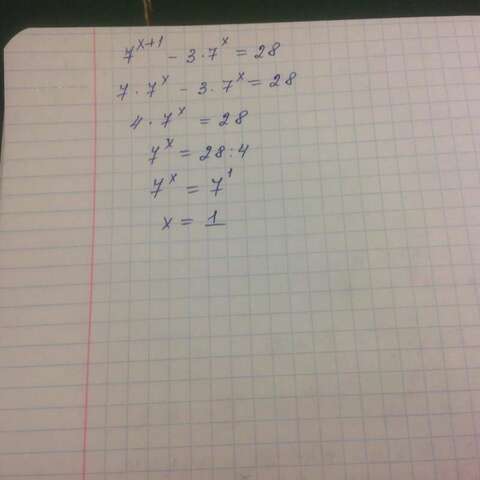 7^{x+1} - 3·7^x = 28
7·7^x - 3·7^x = 28
4·7^x = 28
7^x = 28:4
7^x = 7^1
x = 1